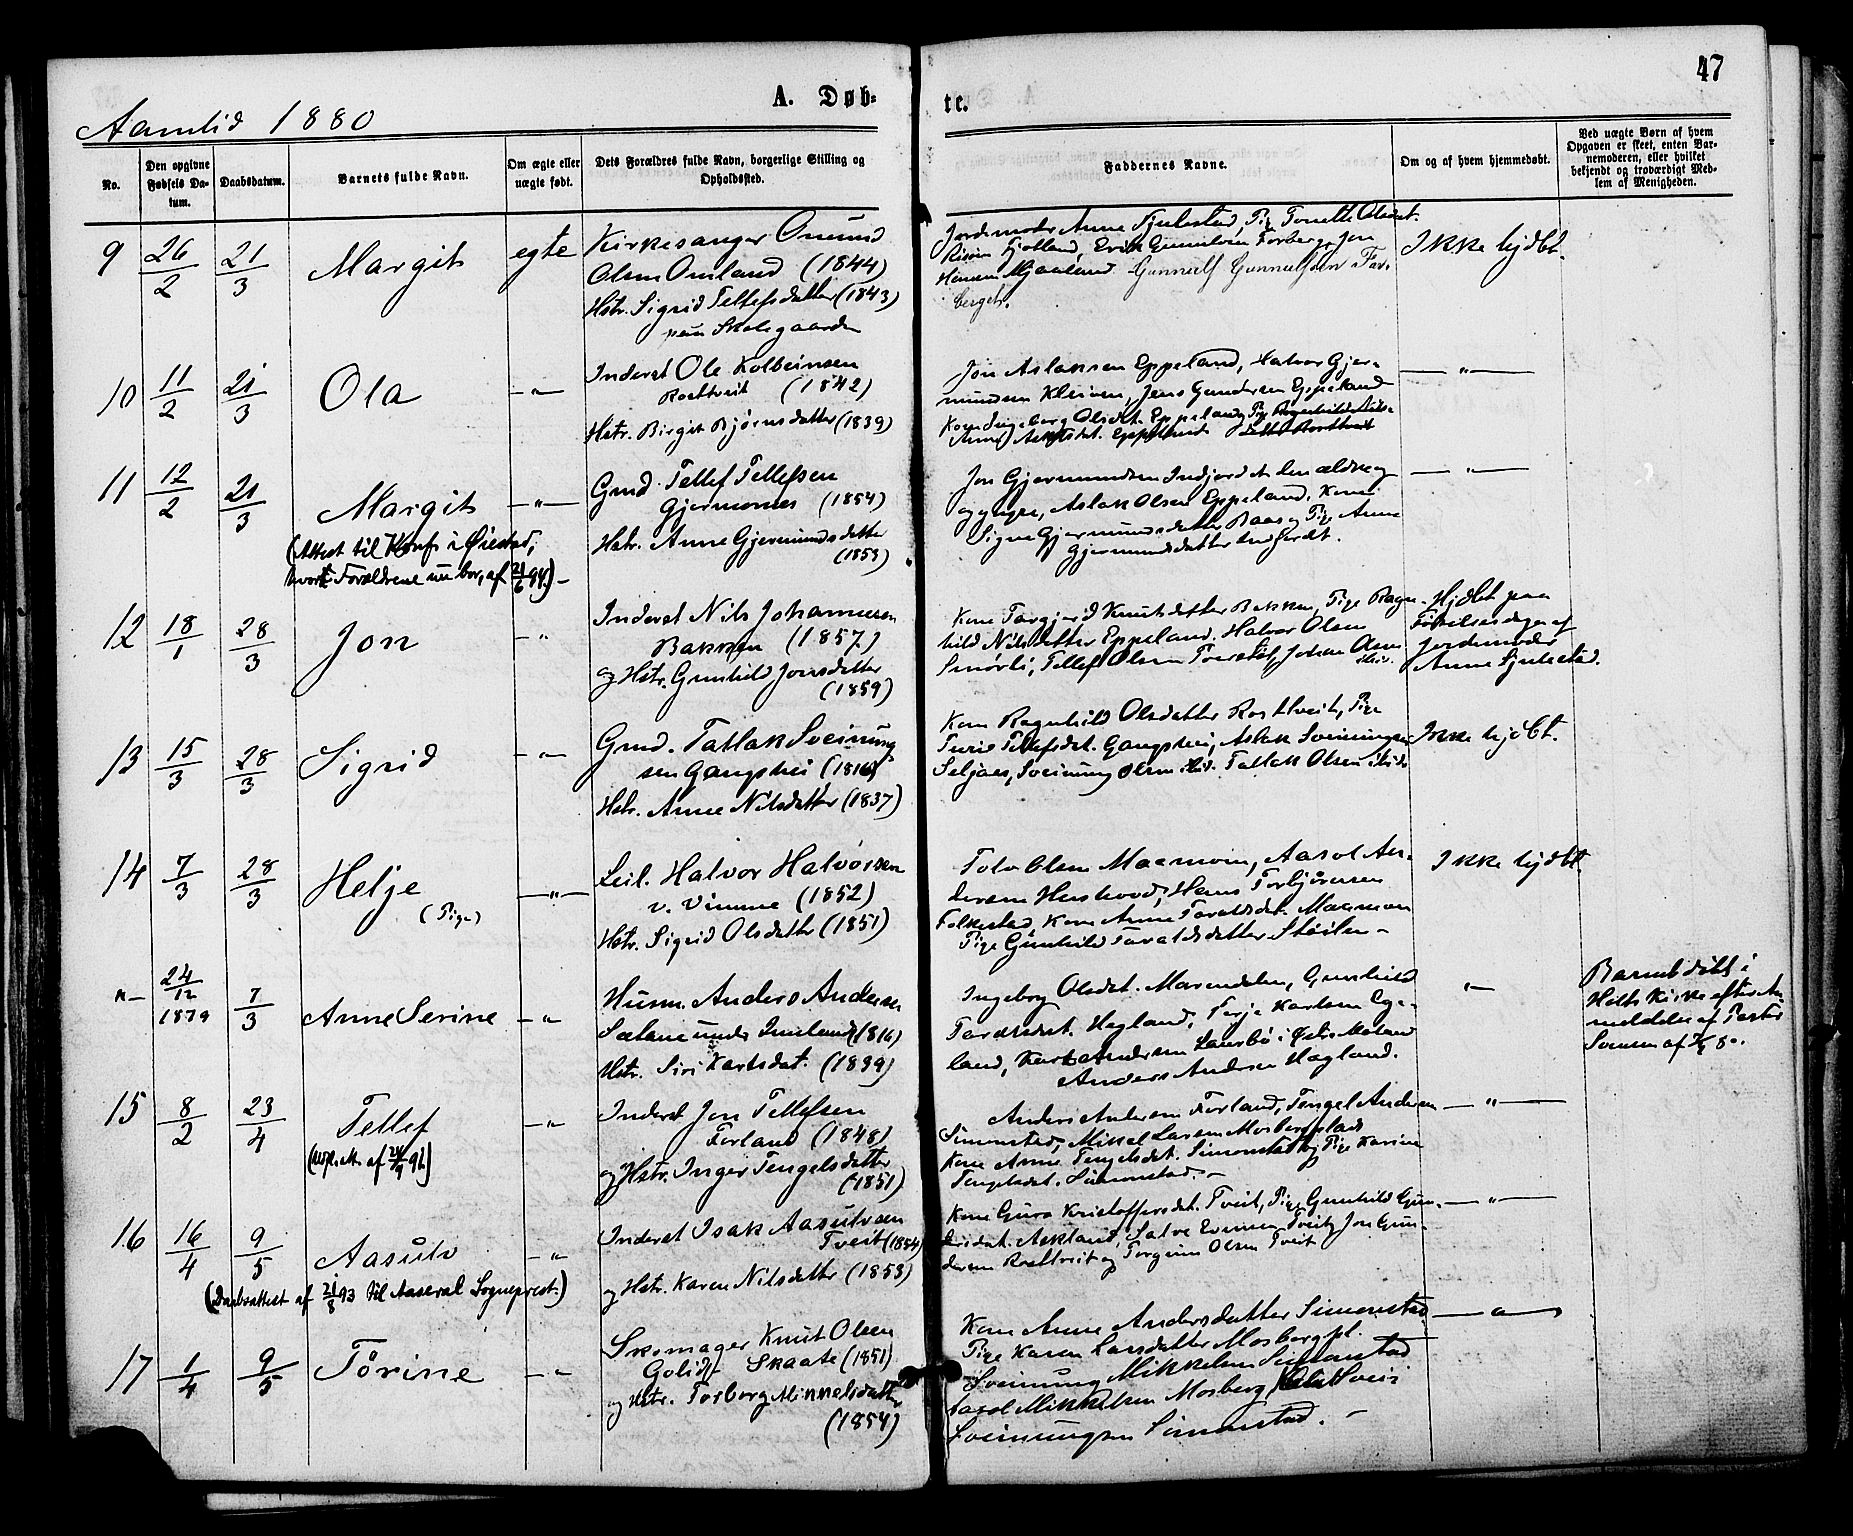 47
Aamlid 1880
A. Døb-
te.
No.
Den opgivne Fødsels Datum.
Daabsdatum.
Barnets fulde Navn.
Om ægte eller uægte født.
Dets Forældres fulde Navn, borgerlige Stilling og Opholdssted.
Faddernes Navne.
Om og af hvem hjemmedøbt.
Ved uægte Børn af hvem Opgaven er skeet, enten Barnemoderen, eller hvilket bekjendt og troværdigt Medlem af Menigheden.
9 26/2 21/3 Margit egte
Kirkesanger Onund
Olsen Omland (1844)
Hstr. Sigrid Tellefsdatter (1843)
paa Skolegaarden
Jordemoder Anne Fjulestad, Pige Tonette Olsdat.
Gunnulf Gunnulfsen For-
berget.
Ikke hjdbt.
10 11/2 21/3 Ola —"—
Inderst Ole Kolbeinsen
Rosttveit (1842)
Hstr. Birgit Bjørnsdatter (1839)
Jon Aslaksen Eppeland, Halvor Gjer-
mundsen Kleiven, Jens Gundersen Eppeland
Kone Ingeborg Olsdat. Eppeland, Pige
Eppeland
—"—
11 12/2 21/3 Margit —"—
(Attest til Konf. i Øiestad,
hvor Forældrene nu bor, af 21/6 94.)—
Gmd. Tellef Tellefsen
Gjermones (1854)
Hstr. Anne Gjermundsdatter
(1853)
Jon Gjermundsen Indjordet den ældre og
og yngre, Aslak Olsen Eppeland, Kone
Signe Gjermundsdatter Baas og Pige Anne
Gjermundsdatter Indjordet.
—"—
12 18/1 28/3 Jon —"—
Inderst Nils Johannesen
Bakken (1857)
og Hstr. Gunhild Jonsdatter
(1859)
Kone Targjerd Knutsdatter Bakken, Pige Ragn-
hild Nilsdatter Eppeland. Halvor Olsen
Smørli, Tellef Olsen
Hjdbt paa
Fødselsdagen af
Jordemoder
Anne Fjulestad.
13 15/3 28/3 Sigrid —"—
Gmd. Tallak Sveinung-
sen Gangshei (1816)
Hstr. Anne Nilsdatter (1837)
Kone Ragnhild Olsdatter Rosttveit, Pige
Turie Tellefsdat. Gangshei, Aslak Sveinungsen
Seljaas, Sveinung Olsen ibid. Tallak Olsen ibid.
Ikke hjdbt.
14 7/3 28/3 Helje —"—
(Pige)
Leil. Halvor Halvorsen
v. Vimme (1852)
Hstr. Sigrid Olsdatter (1851)
Tolv Olsen Maamoen, Aasol An-
dersen Huskvod, Hans Torbjørnsen
Folkestad, Kone Anne Taraldsdat. Maamoen
Pige Gunhild Taraldsdatter Støilen—
Ikke hjdbt.
"— 24/12 1879 7/3 Anne Serine —"
Husm. Anders Andersen
Sætane under Omland (1816)
Hstr. Siri Karlsdat. (1839)
Ingeborg Olsdat. Marendalen, Gunhild
Taraldsdat. Hegland, Terje Karlsen Ege-
land, Karl Andersen
Anders Andersen Hagland.
"—
Barnet døbt i
Holts Kirke efter An-
meldelse af Pastor
15 8/2 23/4 Tellef —"
Inderst Jon Tellefsen
Forland (1848)
og Hstr. Inger Tengelsdatter
(1851)
Anders Andersen Forland, Tengel Andersen
Simonstad, Mikkel Larsen Mosbergplads
Kone Anne Tengelsdat. Simonstad og Pige Karine
Tengelsdat. Simonstad.—
—"—
16 16/4 9/5 Aasulv —"
(Daabsattest af 21/8 93 til Aaseral Sogneprest.)
Inderst Isak Aasulvsen
Tveit (1854)
og Hstr. Karen Nilsdatter (1853)
Kone Guro Kristoffersdat. Tveit, Pige Gunhild Gun-
dersdat. Askland, Salve Evensen Tveit, Jon Gun-
dersen Rosttveit og Torgrim Olsen Tveit
—"—
17 1/4 9/5 Torine —"
Skomager Knut Olsen
Skaate (1851)
og Hstr. Torborg Mikkelsdatter
(1854)
Kone Anne Andersdatter Simonstad
Pige Karen Larsdatter Mosbergpl.
Sveinung Mikkelsen Simonstad
Mikkelsen Mosberg
Sveinungsen Simonstad.—
—"—